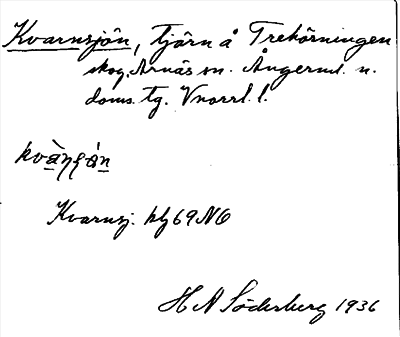 Kvarnsjön, tjärn å Trehörningen
skog, Arnäs sn. Ångerml. n.
doms. tg. Vnorrl. l.
Kvarnsj. blg 69 NO
H A Söderberg 1936